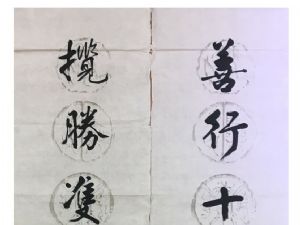 善行十
攬勝隻